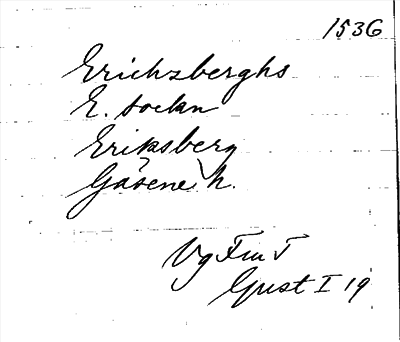 1536
Erichzberghs
E. sockn
Eriksberg
Gäsene h.
Vg Fm T
Gust I 19